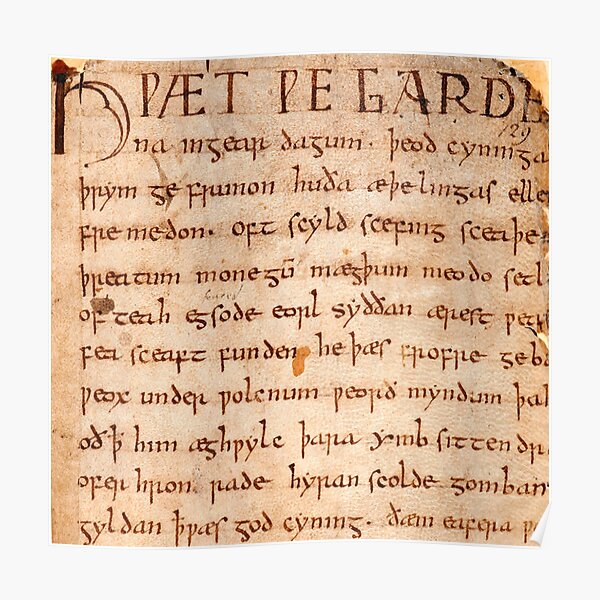 HǷÆT ǷE GARDE
129
na ingear dagum. þeod cyninga
þrym ge frunon huða æþelingas elle
fre medon. oft scyld scefing sceaþe
þreatum monegū mægþum meodo setl
of teah egsode eorl syððan ærest
fea sceaft funden he þæs frofre geba
ƿeox under ƿolcnum ƿeorð myndum þah
oð ꝥ him æghƿylc þara ymb sitten dr
ofer hron rade hyran scolde gomban
gyldan ꝥ ƿæs god cyning. ðæm eafera ƿ